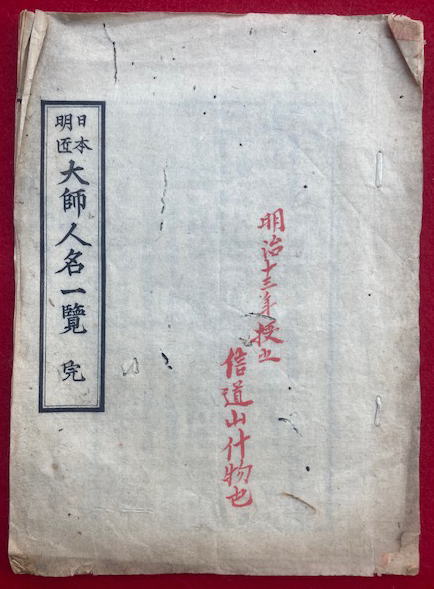 明治十三年授之
信道山什物也
日本
明匠
大師人名一覽 完